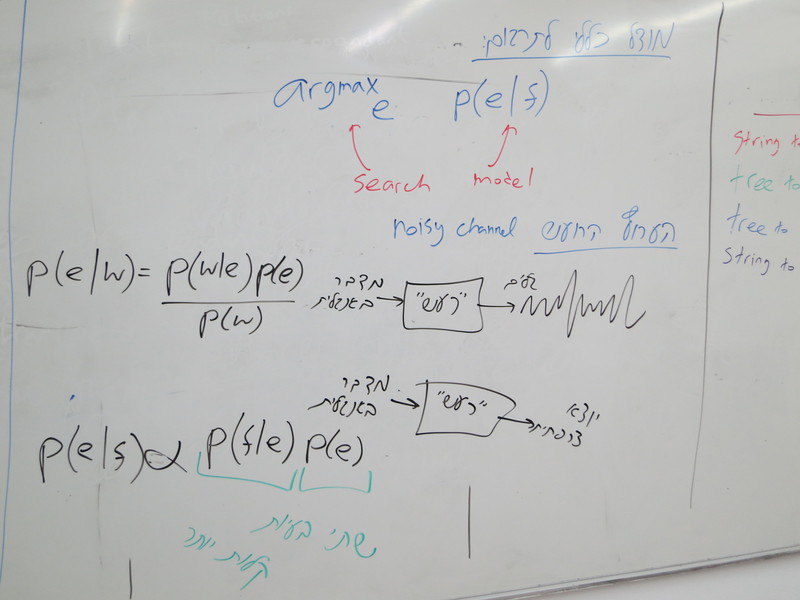 מודל כללי לתרגום:
argmax_e p(e|f)
search model
noisy channel הערוץ הרועש
p(e|w) = p(w|e)p(e)
p(w)
מדבר
באנגלית
"רעש"
גלים
מדבר
באנגלית
"רעש"
יוצא
צרפתית
p(e|f) ∝ p(f|e) p(e)
שתי בעיות
קלות יותר
String to
tree to
tree to
String to